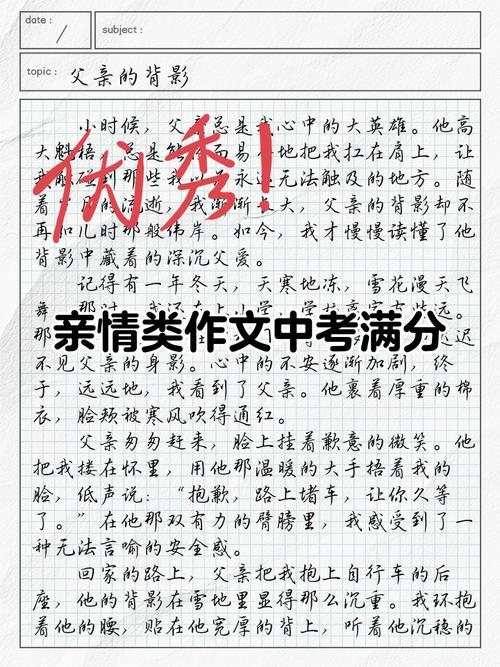 date :
subject :
topic : 父亲的背影
小时候，父亲总是我心中的大英雄。他高
大魁梧，总是能轻而易举地把我扛在肩上，让
我触碰到那些我以为永远无法触及的地方。随
着岁月的流逝，我渐渐长大，父亲的背影却不
再如儿时那般伟岸。如今，我才慢慢读懂了他
背影中藏着的深沉父爱。
优秀！
记得有一年冬天，天寒地冻，雪花漫天飞
舞
亲情类作文中考满分
那
迟迟
不见父亲的身影。心中的不安逐渐加剧，终
于，远远地，我看到了父亲。他裹着厚重的棉
衣，脸颊被寒风吹得通红。
父亲匆匆赶来，脸上挂着歉意的微笑。他
把我搂在怀里，用他那温暖的大手捂着我的
脸，低声说：“抱歉，路上堵车，让你久等
了。”在他那双有力的臂膀里，我感受到了一
种无法言喻的安全感。
回家的路上，父亲把我抱上自行车的后
座，他的背影在雪地里显得那么沉重。我环抱
着他的腰，贴在他宽厚的背上，听着他沉稳的